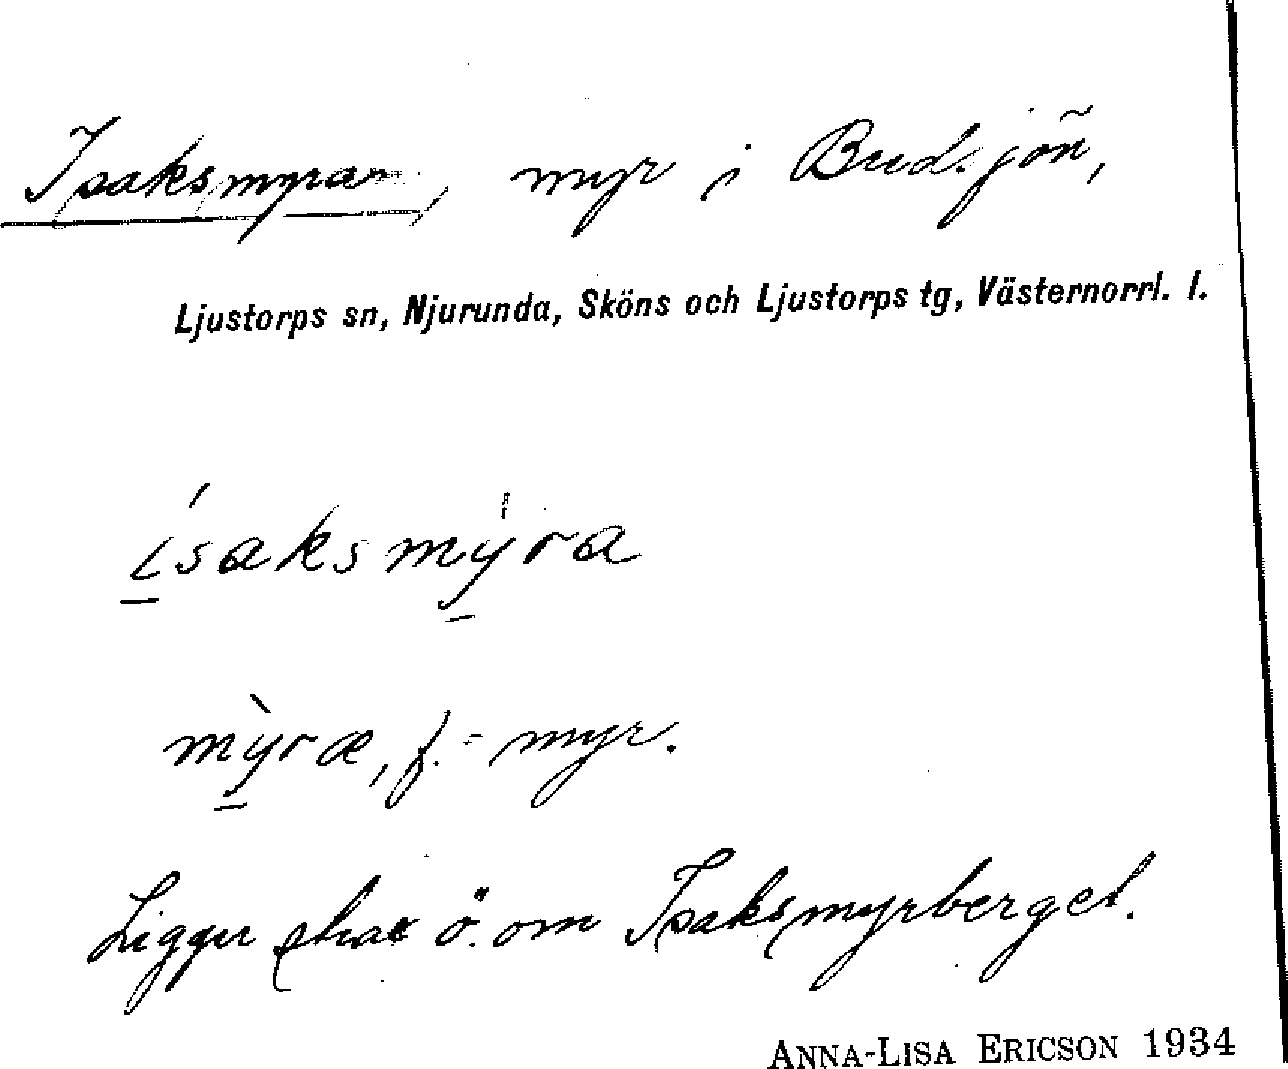 Isaksmyran, myr i Budsjön,
Ljustorps sn, Njurunda, Sköns och Ljustorps tg, Västernorrl. l.
ísaksmýra
mỳræ, f. = myr.
Ligger strax ö. om Isaksmyrberget.
ANNA-LISA ERICSON 1934